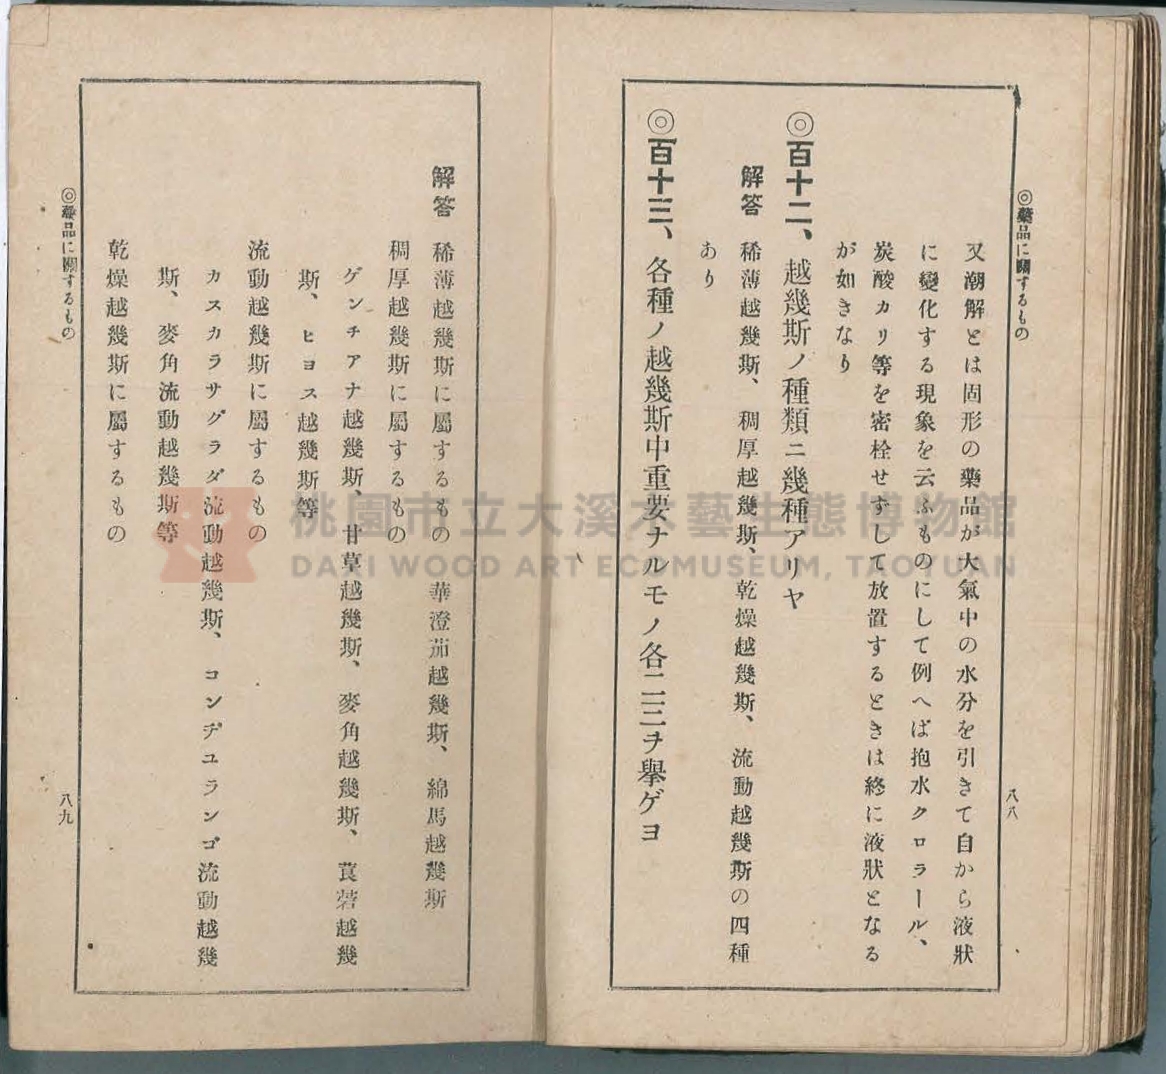 ◎藥品に關するもの
八八
又潮解とは固形の藥品が大氣中の水分を引きて自から液狀
に變化する現象を云ふものにして例へば抱水クロラール、
炭酸カリ等を密栓せずして放置するときは終に液狀となる
が如きなり
◎百十二、越幾斯ノ種類ニ幾種アリヤ
解答 稀薄越幾斯、稠厚越幾斯、乾燥越幾斯、流動越幾斯の四種
あり
◎百十三、各種ノ越幾斯中重要ナルモノ各二三ヲ擧ゲヨ
解答 稀薄越幾斯に屬するもの 華澄茄越幾斯、綿馬越幾斯
稠厚越幾斯に屬するもの
ゲンチアナ越幾斯、甘草越幾斯、麥角越幾斯、莨菪越幾
斯、ヒヨス越幾斯等
流動越幾斯に屬するもの
カスカラサグラダ流動越幾斯、コンヂユランゴ流動越幾
斯、麥角流動越幾斯等
乾燥越幾斯に屬するもの
◎藥品に關するもの
八九
桃園市立大溪木藝生態博物館
DAXI WOOD ART ECOMUSEUM, TAOYUAN